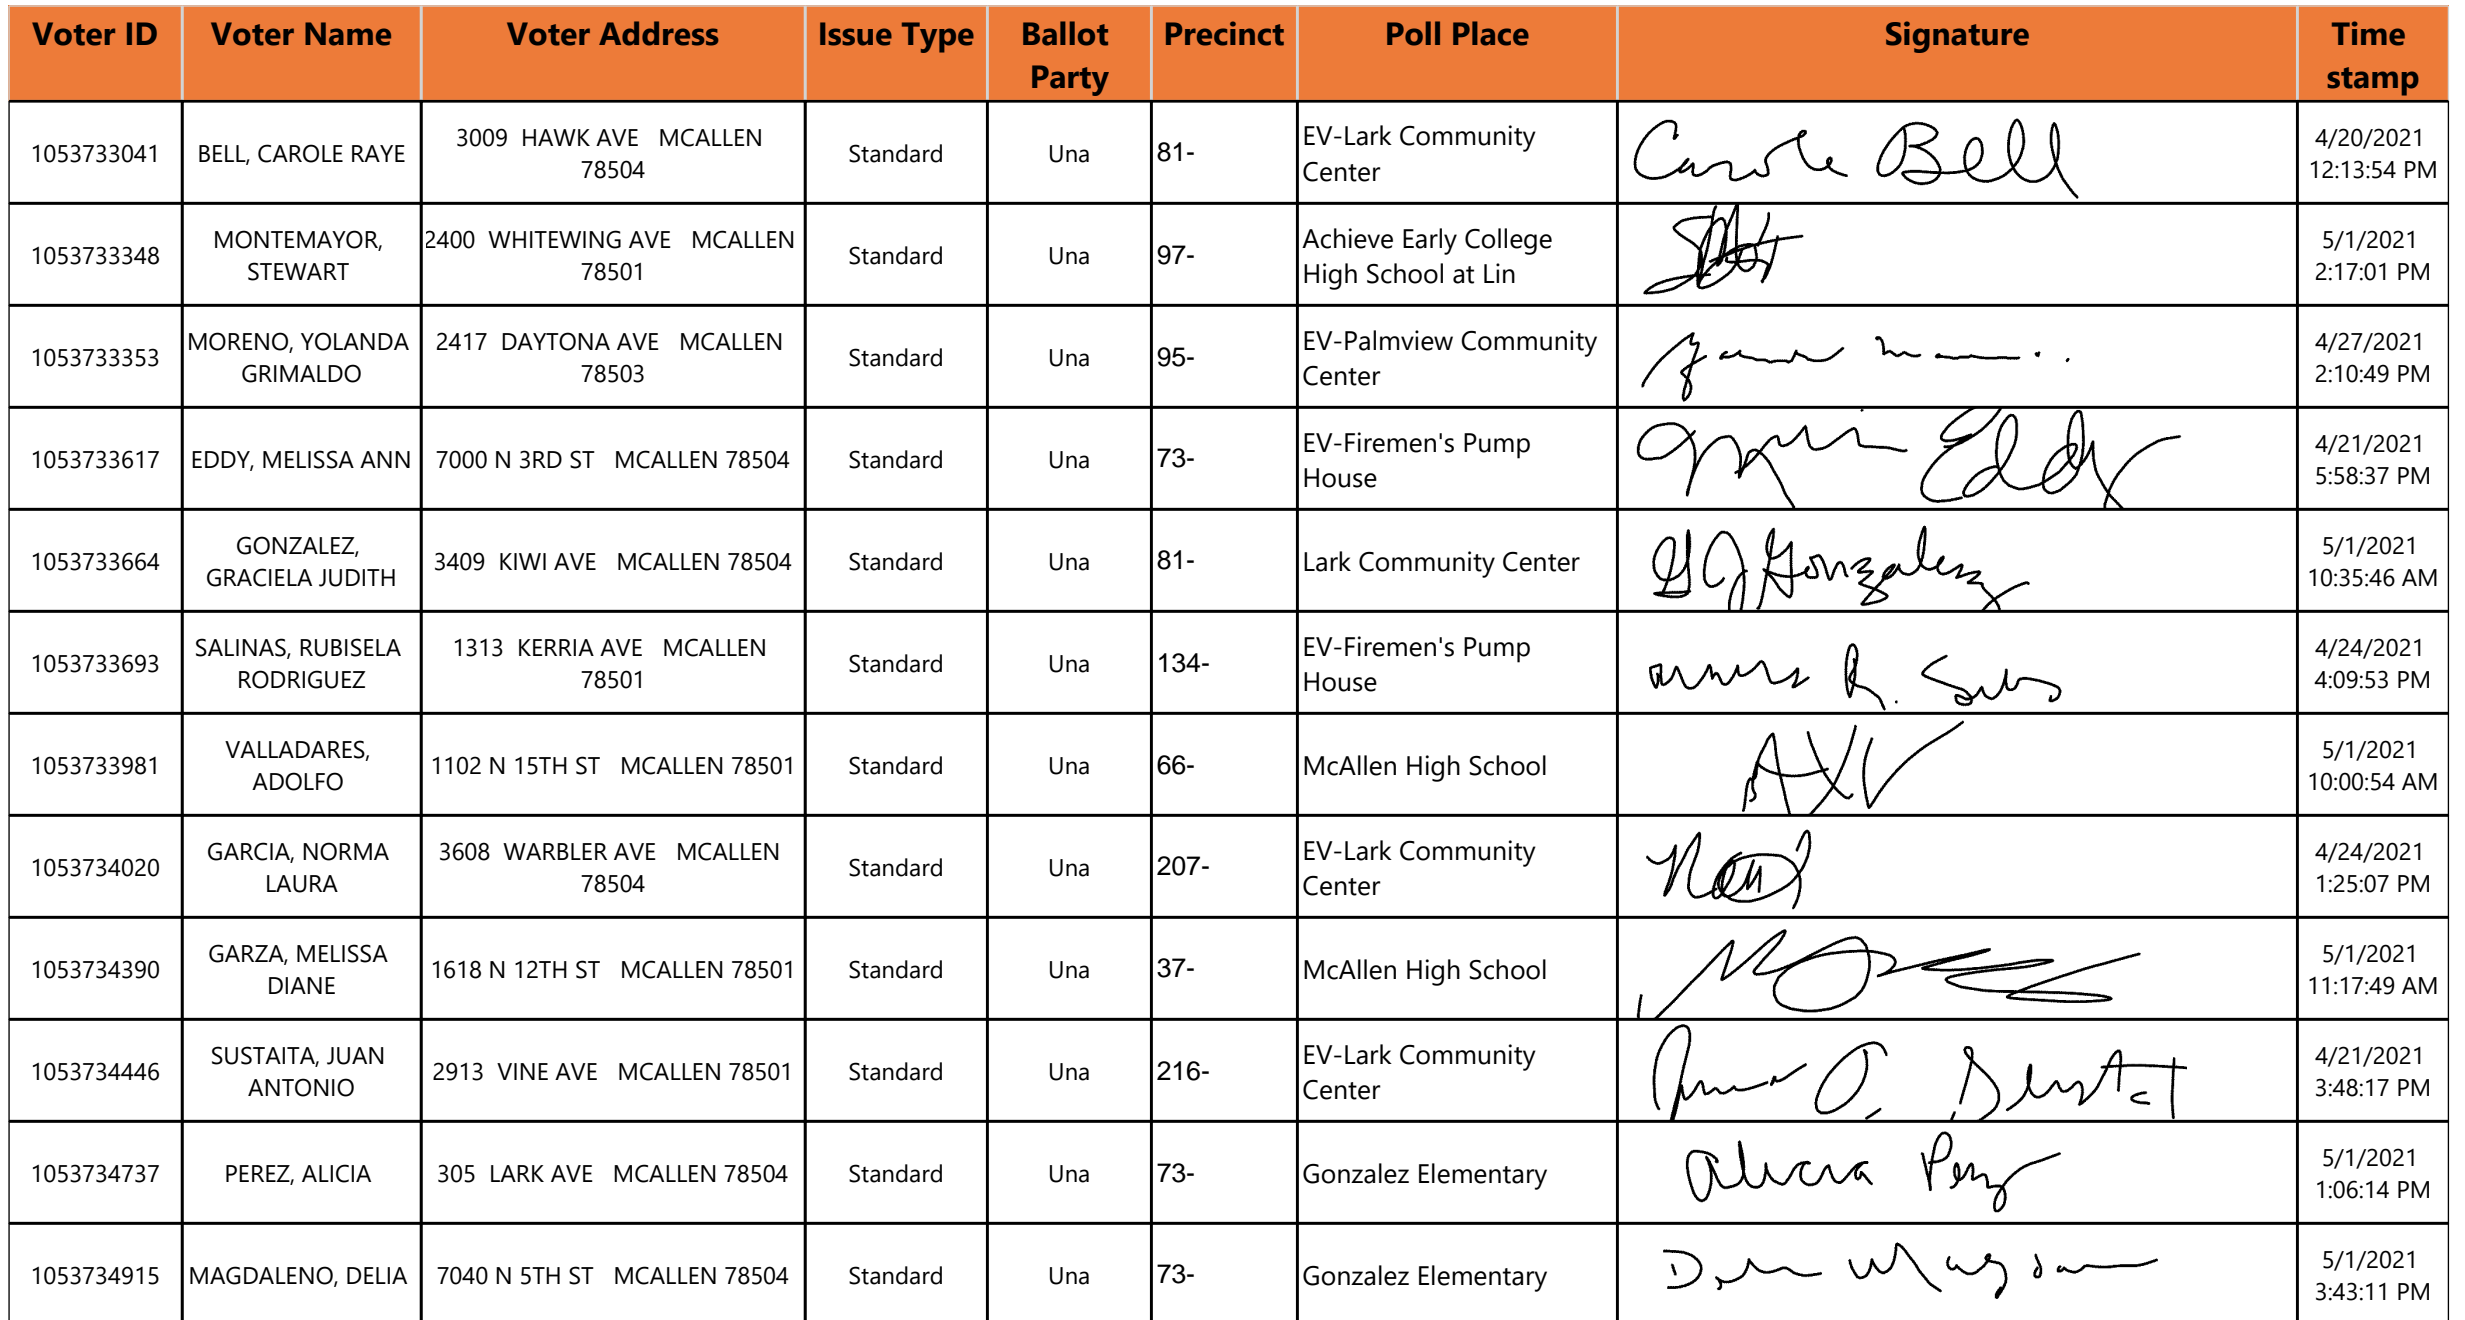 Voter ID Voter Name Voter Address Issue Type Ballot Party Precinct Poll Place Signature Time stamp
1053733041 BELL, CAROLE RAYE 3009 HAWK AVE MCALLEN 78504 Standard Una 81- EV-Lark Community Center Carole Bell 4/20/2021 12:13:54 PM
1053733348 MONTEMAYOR, STEWART 2400 WHITEWING AVE MCALLEN 78501 Standard Una 97- Achieve Early College High School at Lin 5/1/2021 2:17:01 PM
1053733353 MORENO, YOLANDA GRIMALDO 2417 DAYTONA AVE MCALLEN 78503 Standard Una 95- EV-Palmview Community Center 4/27/2021 2:10:49 PM
1053733617 EDDY, MELISSA ANN 7000 N 3RD ST MCALLEN 78504 Standard Una 73- EV-Firemen's Pump House Eddy 4/21/2021 5:58:37 PM
1053733664 GONZALEZ, GRACIELA JUDITH 3409 KIWI AVE MCALLEN 78504 Standard Una 81- Lark Community Center GJ Gonzalez 5/1/2021 10:35:46 AM
1053733693 SALINAS, RUBISELA RODRIGUEZ 1313 KERRIA AVE MCALLEN 78501 Standard Una 134- EV-Firemen's Pump House R. 4/24/2021 4:09:53 PM
1053733981 VALLADARES, ADOLFO 1102 N 15TH ST MCALLEN 78501 Standard Una 66- McAllen High School AXV 5/1/2021 10:00:54 AM
1053734020 GARCIA, NORMA LAURA 3608 WARBLER AVE MCALLEN 78504 Standard Una 207- EV-Lark Community Center 4/24/2021 1:25:07 PM
1053734390 GARZA, MELISSA DIANE 1618 N 12TH ST MCALLEN 78501 Standard Una 37- McAllen High School 5/1/2021 11:17:49 AM
1053734446 SUSTAITA, JUAN ANTONIO 2913 VINE AVE MCALLEN 78501 Standard Una 216- EV-Lark Community Center 4/21/2021 3:48:17 PM
1053734737 PEREZ, ALICIA 305 LARK AVE MCALLEN 78504 Standard Una 73- Gonzalez Elementary Alicia Perez 5/1/2021 1:06:14 PM
1053734915 MAGDALENO, DELIA 7040 N 5TH ST MCALLEN 78504 Standard Una 73- Gonzalez Elementary 5/1/2021 3:43:11 PM